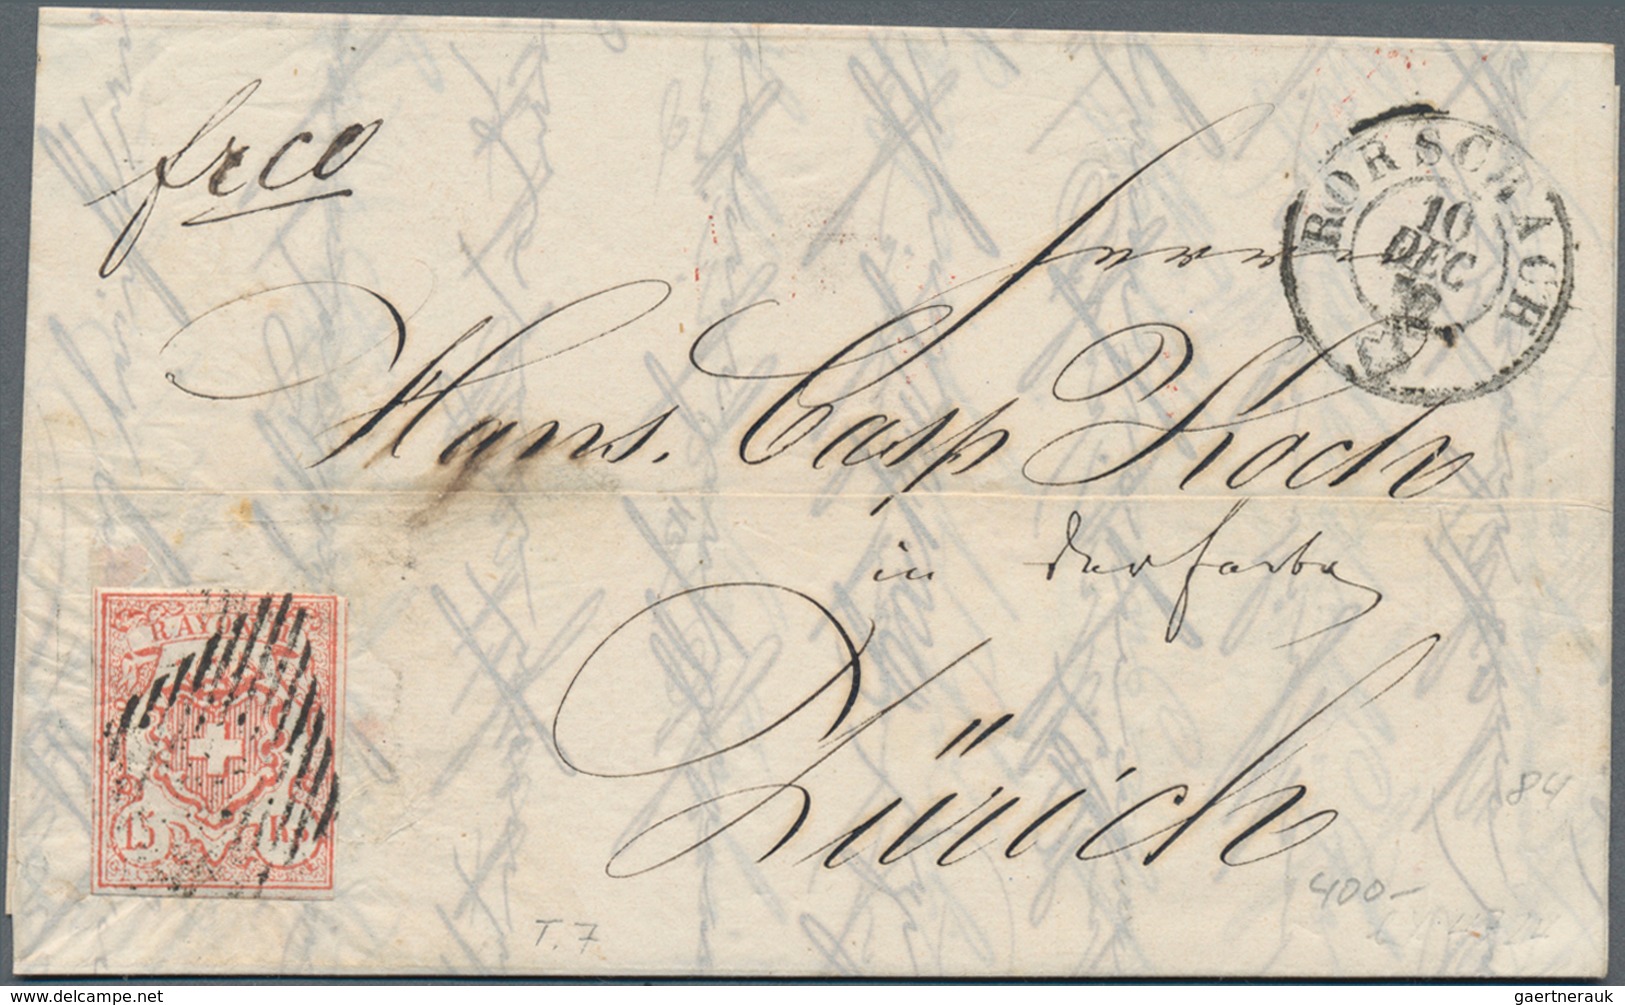 frco
RORSCHACH
10
DEC
Herrn
Hans. Casp Koch
in der Farbe
Zürich
RAYON III
15 Rp
T. 7
400-
84
www.delcampe.net
gaertnerauk